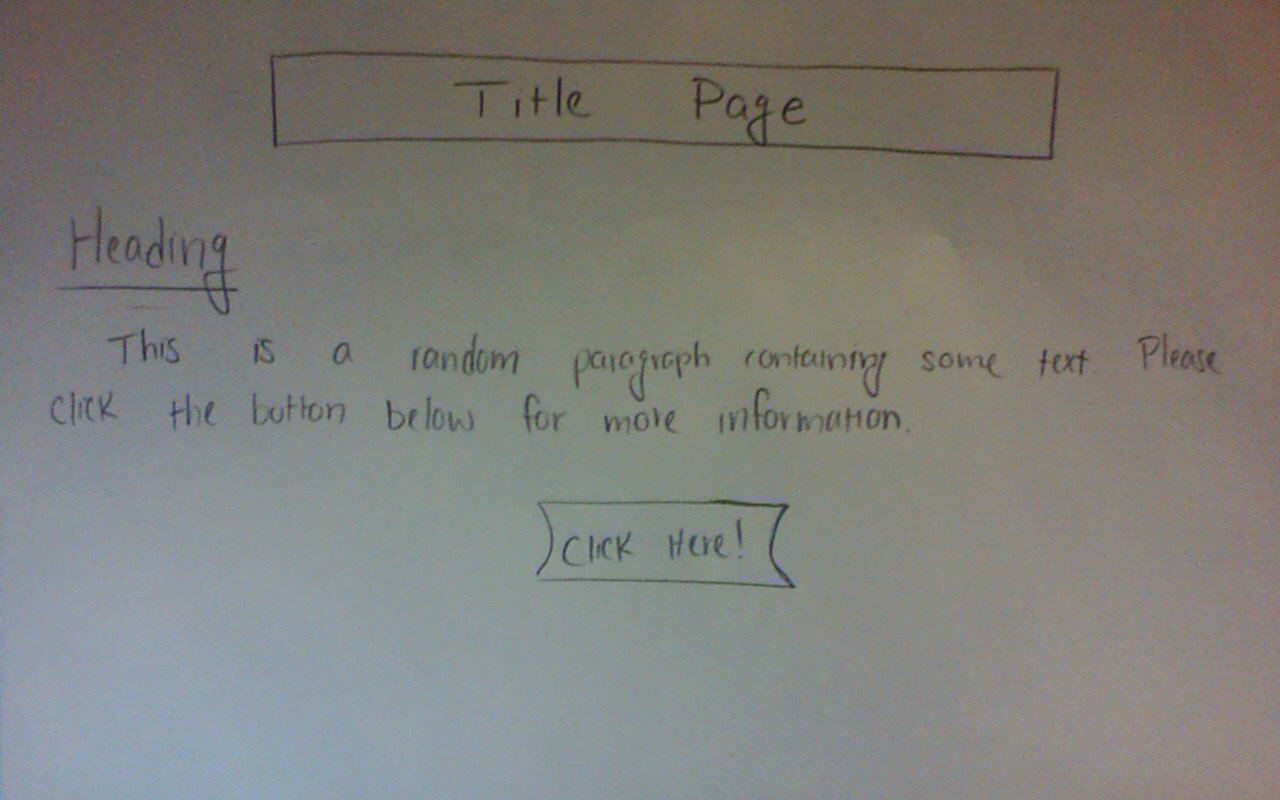 Title Page
Heading
This is a random paragraph containing some text. Please
click the button below for more information.
Click Here!